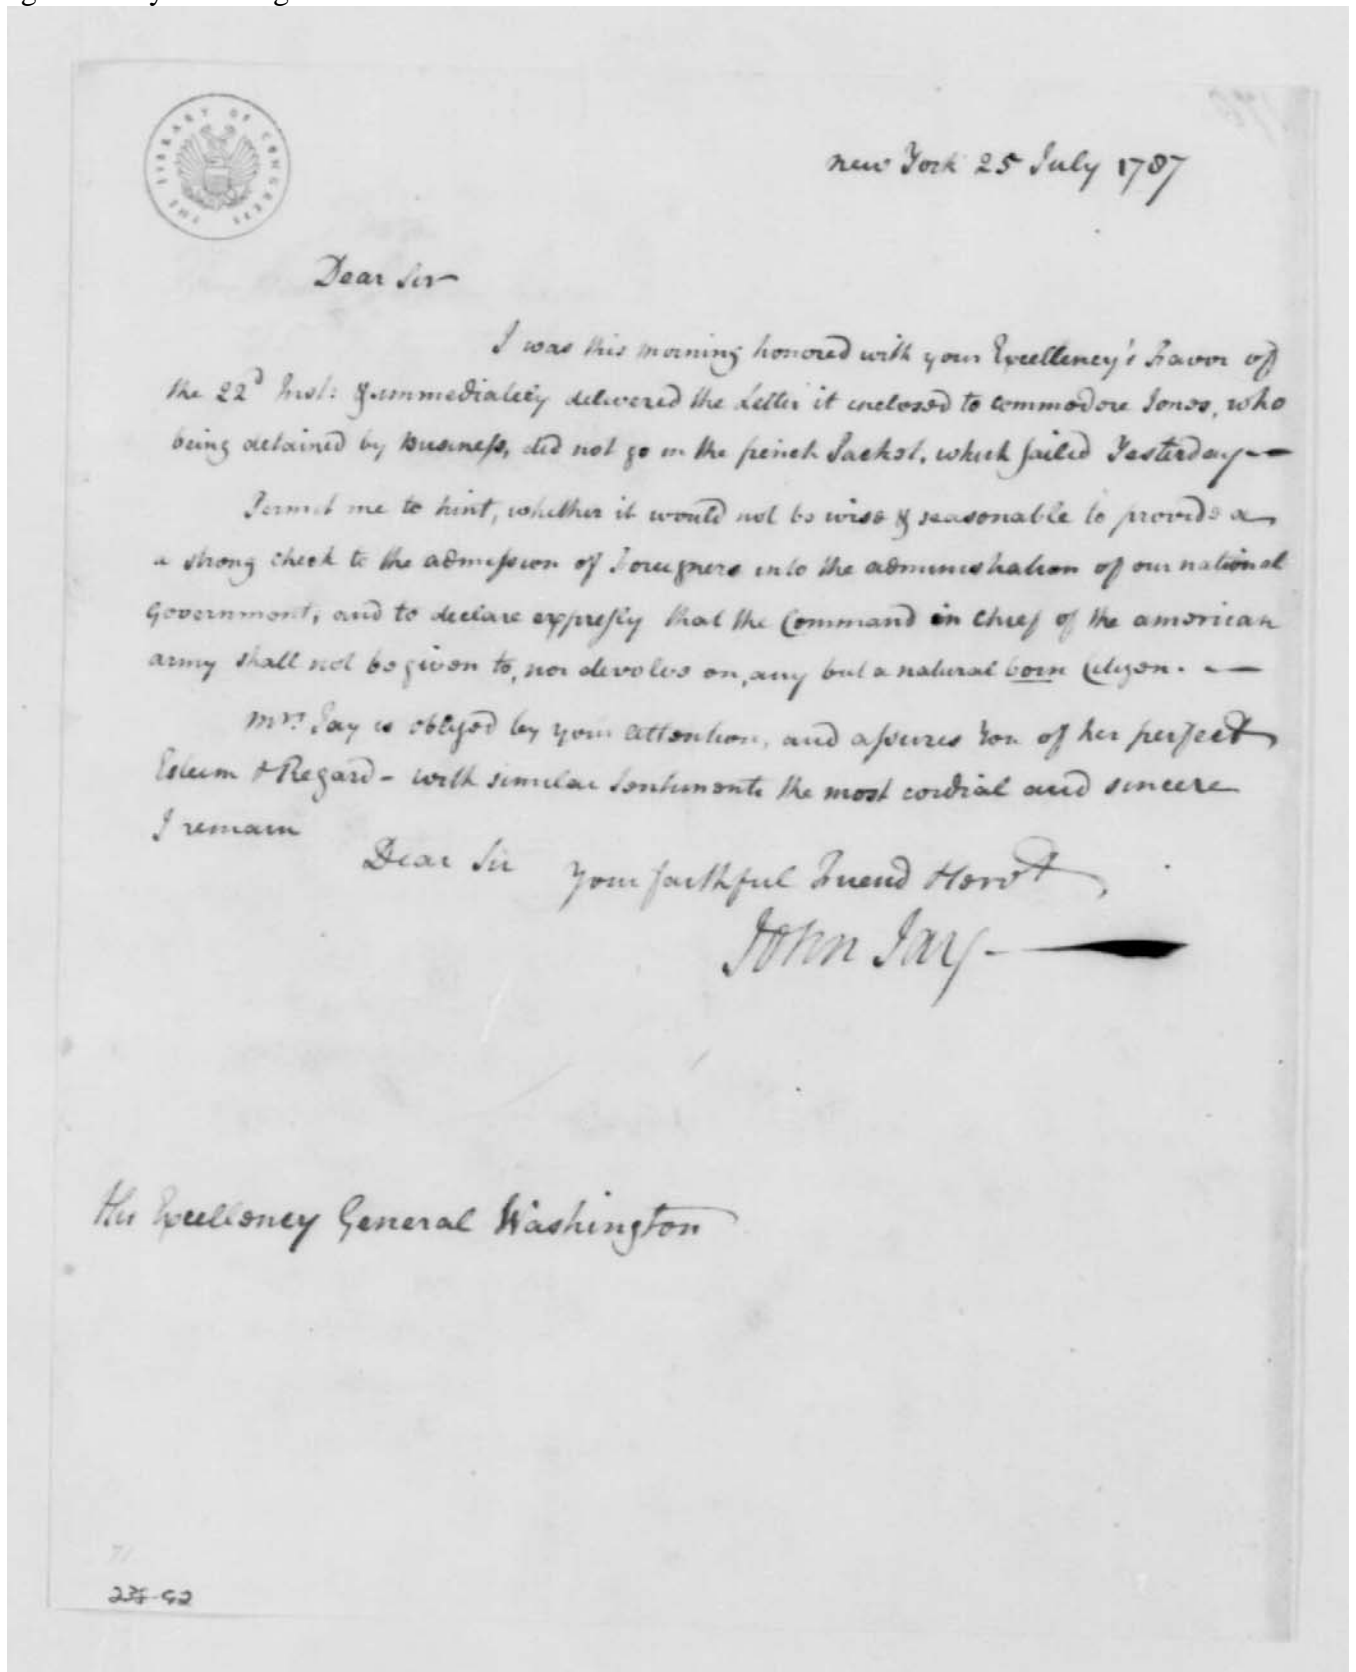 THE LIBRARY OF CONGRESS
new York 25 July 1787
Dear Sir
I was this morning honored with your Excellency's Favor of
the 22d Inst: & immediately delivered the Letter it enclosed to commodore Jones, who
being detained by Business, did not go in the french Packet, which sailed Yesterday—
Permit me to hint, whether it would not be wise & seasonable to provide a
a strong check to the admission of Foreigners into the administration of our national
Government, and to declare expressly that the Command in chief of the american
army shall not be given to, nor devolve on, any but a natural born Citizen. —
Mrs. Jay is obliged by your attention, and assures You of her perfect
Esteem & Regard – with similar Sentiments the most cordial and sincere
I remain
Dear Sir Your faithful Friend & Servt
John Jay —
His Excellency General Washington
71